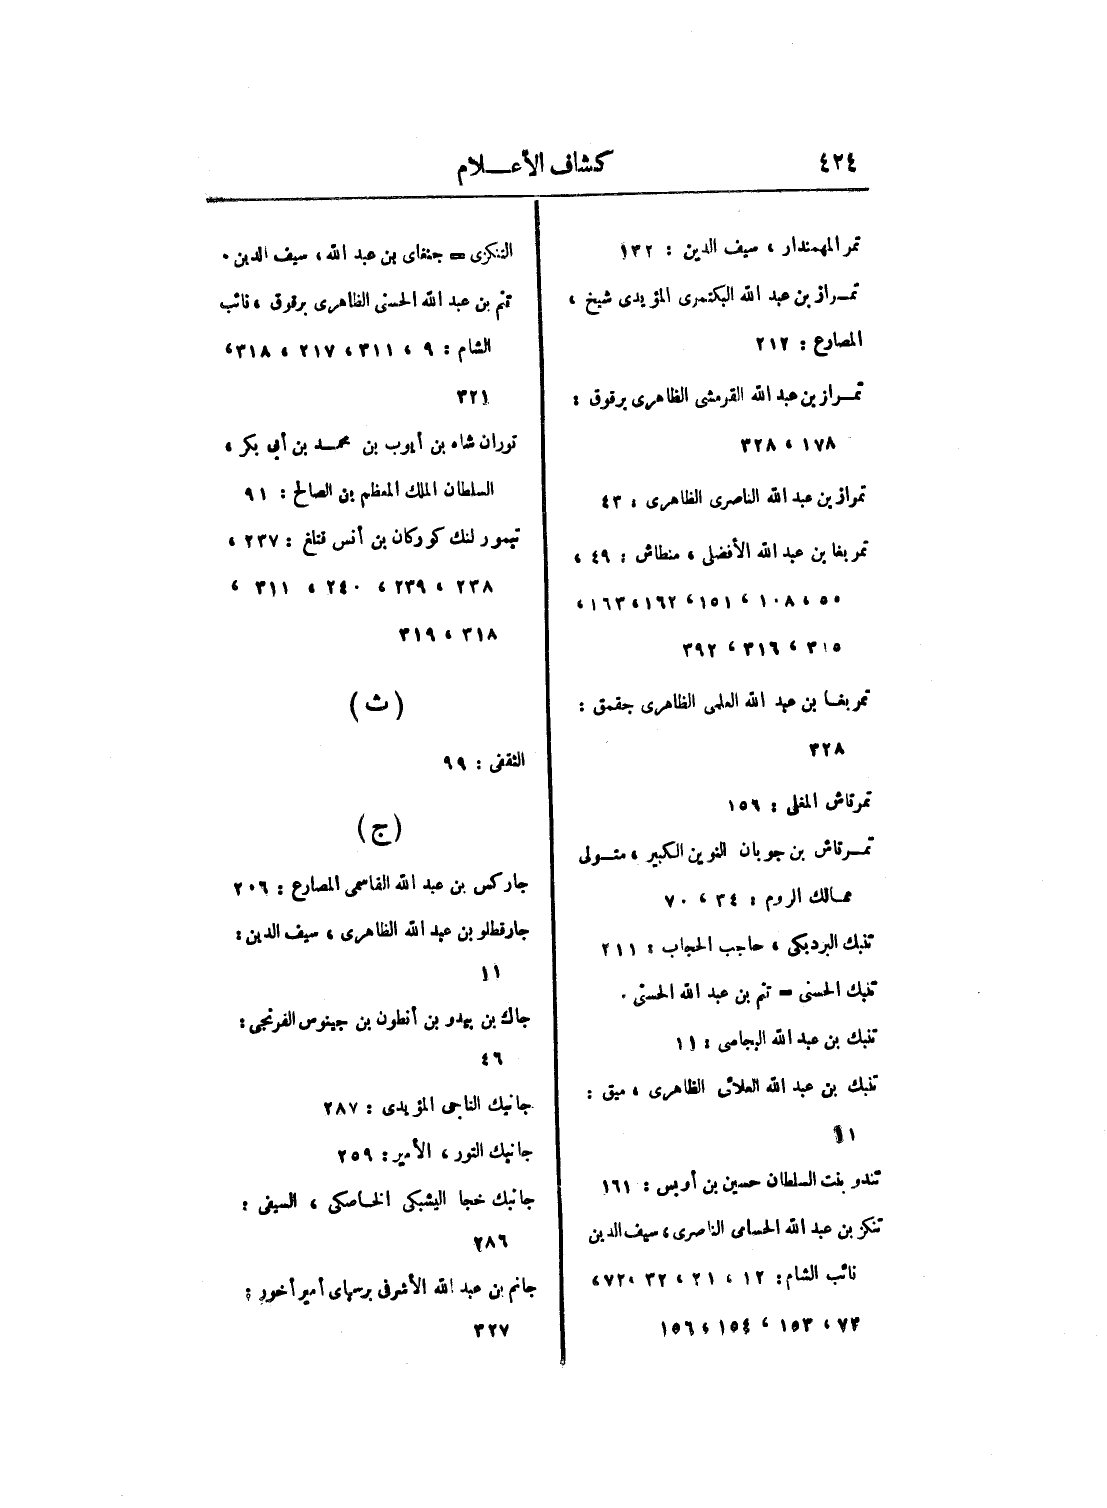 ٤٢٤
كشاف الأعـــلام
تمر المهمندار ، سيف الدين : ١٣٢
تمـراز بن عبد الله البكتمرى المؤيدى شيخ ،
المصارع : ٢١٢
تمـراز بن عبد الله القرمشى الظاهرى برقوق :
١٧٨ ، ٣٢٨
تمراز بن عبد الله الناصرى الظاهرى : ٤٣
تمربغا بن عبد الله الأفضلى ، منطاش : ٤٩ ،
٥٥ ، ١٠٨ ، ١٥١ ، ١٦٢ ، ١٦٣ ،
٣١٥ ، ٣١٦ ، ٣٩٢
تمربغـا بن عبد الله العلمى الظاهرى جقمق :
٣٢٨
تمرتاش المغلى : ١٥٦
تمـرتاش بن جوبان النوين الكبير ، متـولى
ممـالك الروم : ٣٤ ، ٧٠
تنبك البرديكى ، حاجب الحجاب : ٢١١
تنبك الحسنى = تنم بن عبد الله الحسنى .
تنبك بن عبد الله البجامى : ١١
تنبك بن عبد الله العلائى الظاهرى ، ميق :
١١
تندو بنت السلطان حسين بن أويس : ١٦١
تنكز بن عبد الله الحسامى الناصرى ، سيف الدين
نائب الشام : ١٢ ، ٢١ ، ٣٢ ، ٧٢ ،
٧٣ ، ١٥٣ ، ١٥٤ ، ١٥٦
التنكزى = جنغاى بن عبد الله ، سيف الدين .
تنم بن عبد الله الحسنى الظاهرى برقوق ، نائب
الشام : ٩ ، ٣١١ ، ٢١٧ ، ٣١٨ ،
٣٢١
توران شاه بن أيوب بن محمـد بن أبى بكر ،
السلطان الملك المعظم بن الصالح : ٩١
تيمور لنك كوركان بن أنس قتلغ : ٢٣٧ ،
٢٣٨ ، ٢٣٩ ، ٢٤٠ ، ٣١١ ،
٣١٨ ، ٣١٩
(ث)
الثقفى : ٩٩
(ج)
جاركس بن عبد الله القاسمى المصارع : ٢٠٦
جارقطلو بن عبد الله الظاهرى ، سيف الدين :
١١
جاك بن بيدو بن أنطون بن جينوس الفرنجى :
٤٦
جانبك الناجى المؤيدى : ٢٨٧
جانبك الثور ، الأمير : ٢٥٩
جانبك خجا اليشبكى الخاصكى ، السيفى :
٢٨٦
جانم بن عبد الله الأشرفى برسباى أمير أخور :
٣٢٧